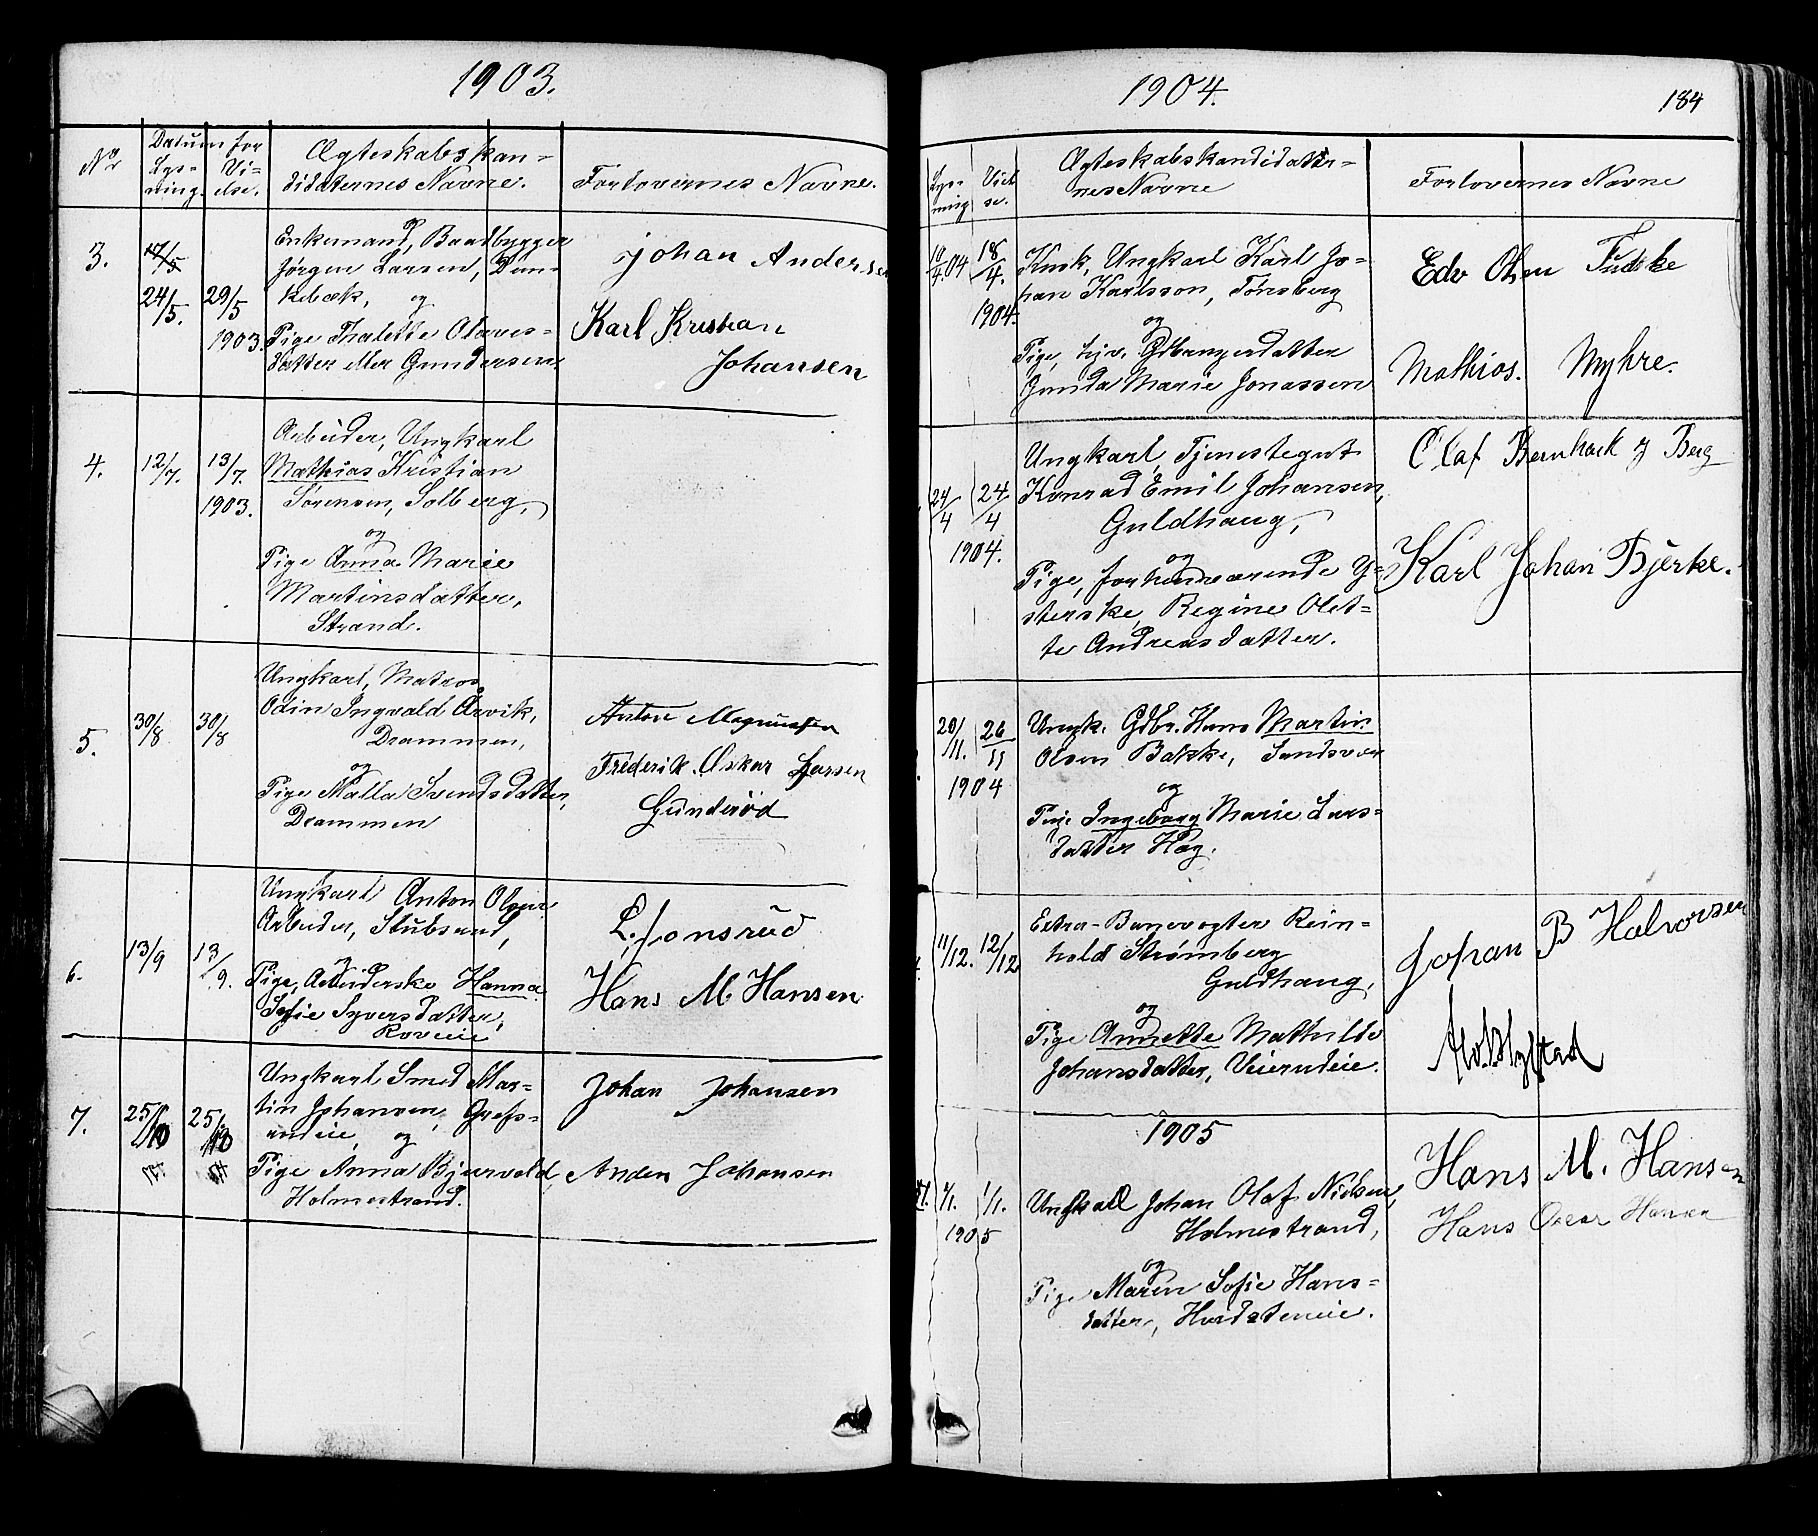 1903.
No
Datum for
Lys-
ning.
Vi-
else.
Ægteskabskan-
didaternes Navne.
Forlovernes Navne.
3.
17/5
24/5.
29/5
1903.
Enkemand, Baadbygger
Jørgen Larsen, Dun-
kebæk, og
Pige Thalette Olaves-
datter eller Gundersen.
Johan Andersen
Karl Kristian
Johansen
4.
12/7.
13/7.
1903.
Arbeider, Ungkarl
Mathias Kristian
Sørensen, Solberg,
og
Pige Anna Marie
Martinsdatter,
Strand.
5.
30/8
30/8
Ungkarl, Matros,
Odin Ingvald Arvik,
Drammen,
og
Pige Malla Svendsdatter,
Drammen
Anton Magnussen
Frederik Oskar Larsen
Gunderød
6.
13/9
13/9.
Ungkarl Anton Olsen
Arbeider, Stubsrud,
og
Pige, Arbeiderske Hanna
Sofie Syversdatter,
Roveie
L. Jonsrud
Hans M Hansen
7.
25/10
25/10
Ungkarl Smed Mar-
tin Johansen,
og
Pige Anna Bjurvold,
Holmestrand.
Johan Johansen
Anden Johansen
1904.
184
Lys-
ning
Viel
se.
Ægteskabskandidater-
nes Navne
Forlovernes Navne
10/4.04
18/4.
1904.
Kusk, Ungkarl Karl Jo-
han Karlsson, Tønsberg
og
Pige, hjv. Gdbangerdatter
Gunda Marie Jonassen
Edv Olsen
Mathias. Myhre.
24/4
24/4
1904.
Ungkarl, Tjenestegut
Konrad Emil Johansen,
Guldhaug,
og
Pige, forhenværende Y-
sterske, Regine Olet-
te Andreasdatter.
Olaf Bernhard Berg
Karl Johan Bjerke.
20/11.
26/11
1904
Ungk. Gdbr. Hans Martin
Olsen Bakke, Sandsvær
og
Pige Ingeborg Marie Lars-
datter Hag.
11/12.
12/12
Extra-Banevogter Rein-
hold Strømberg
Guldhaug,
og
Pige Annette Mathilde
Johansdatter, Veierudeie.
Johan B Halvorsen
1905
1/1.
1/1.
1905
Ungkarl Johan Olaf Nielsen,
Holmestrand,
og
Pige Maren Sofie Hans-
datter,
Hans M. Hansen
Hans Oscar Hansen